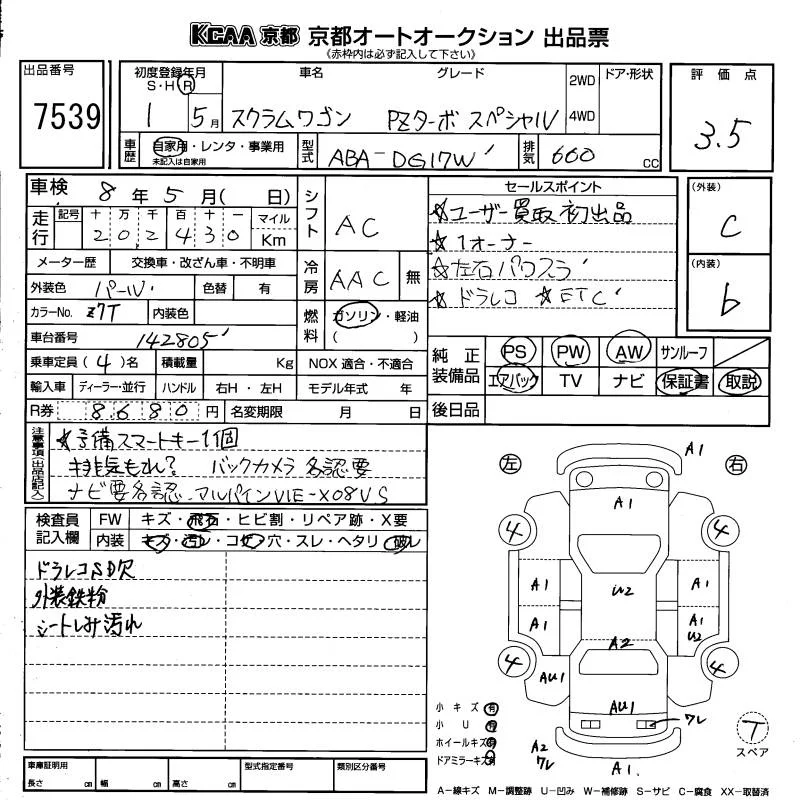 KCAA 京都 京都オートオークション 出品票
《赤枠内は必ず記入して下さい》
出品番号 7539
初度登録年月 S・H Ⓡ 1 5月
車名 グレード
スクラムワゴン PZターボ スペシャル
2WD 4WD
ドア・形状
評価点 3.5
車歴 自家用・レンタ・事業用
未記入は自家用
型式 ABA-DG17W
排気 660 CC
車検 8年5月( 日)
走行 記号 十 万 千 百 十 一 マイル Km
202430
シフト AC
冷房 AAC 無
メーター歴 交換車・改ざん車・不明車
外装色 パール 色替 有
カラーNo. Z7T 内装色
燃料 ガソリン・軽油
( )
車台番号 142805
乗車定員(4)名 積載量 Kg NOX 適合・不適合
輸入車 ディーラー・並行 ハンドル 右H・左H モデル年式 年
R券 8680円 名変期限 月 日
セールスポイント
☆ユーザー買取初出品
☆1オーナー
☆左右パワスラ
☆ドラレコ ☆ETC
(外装) C
(内装) b
純正装備品 PS PW AW サンルーフ
エアバック TV ナビ 保証書 取説
後日品
注意事項(出品店記入)
☆予備スマートキー1個
排気もれ? バックカメラ 各認要
ナビ要各認 アルパインVIE-X08VS
検査員記入欄
FW キズ・飛石・ヒビ割・リペア跡・X要
内装 キズ・汚レ・コゲ・穴・スレ・ヘタリ・破レ
ドラレコSD欠
外装鉄粉
シートしみ汚れ
左 右
A1
A1
4 4
A1 W2 A1
A1 A1 W2
A2
4 4
AU1 AU1
ワレ
A2 ワレ
A1.
小キズ 有
小U 有
ホイールキズ 有
ドアミラーキズ 有
T
スペア
車庫証明用 長さ cm 幅 cm 高さ cm
型式指定番号 類別区分番号
A-線キズ M-調整跡 U-凹み W-補修跡 S-サビ C-腐食 XX-取替済